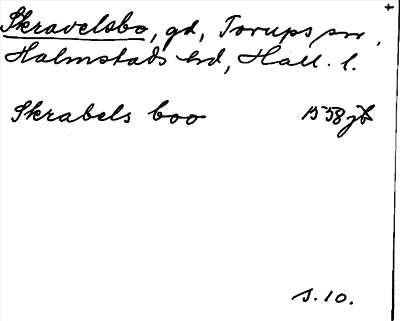 Skravelsbo, gd, Torups sn,
Halmstads hd, Hall. l.
Skrabels boo 1558 jb
s. 10.